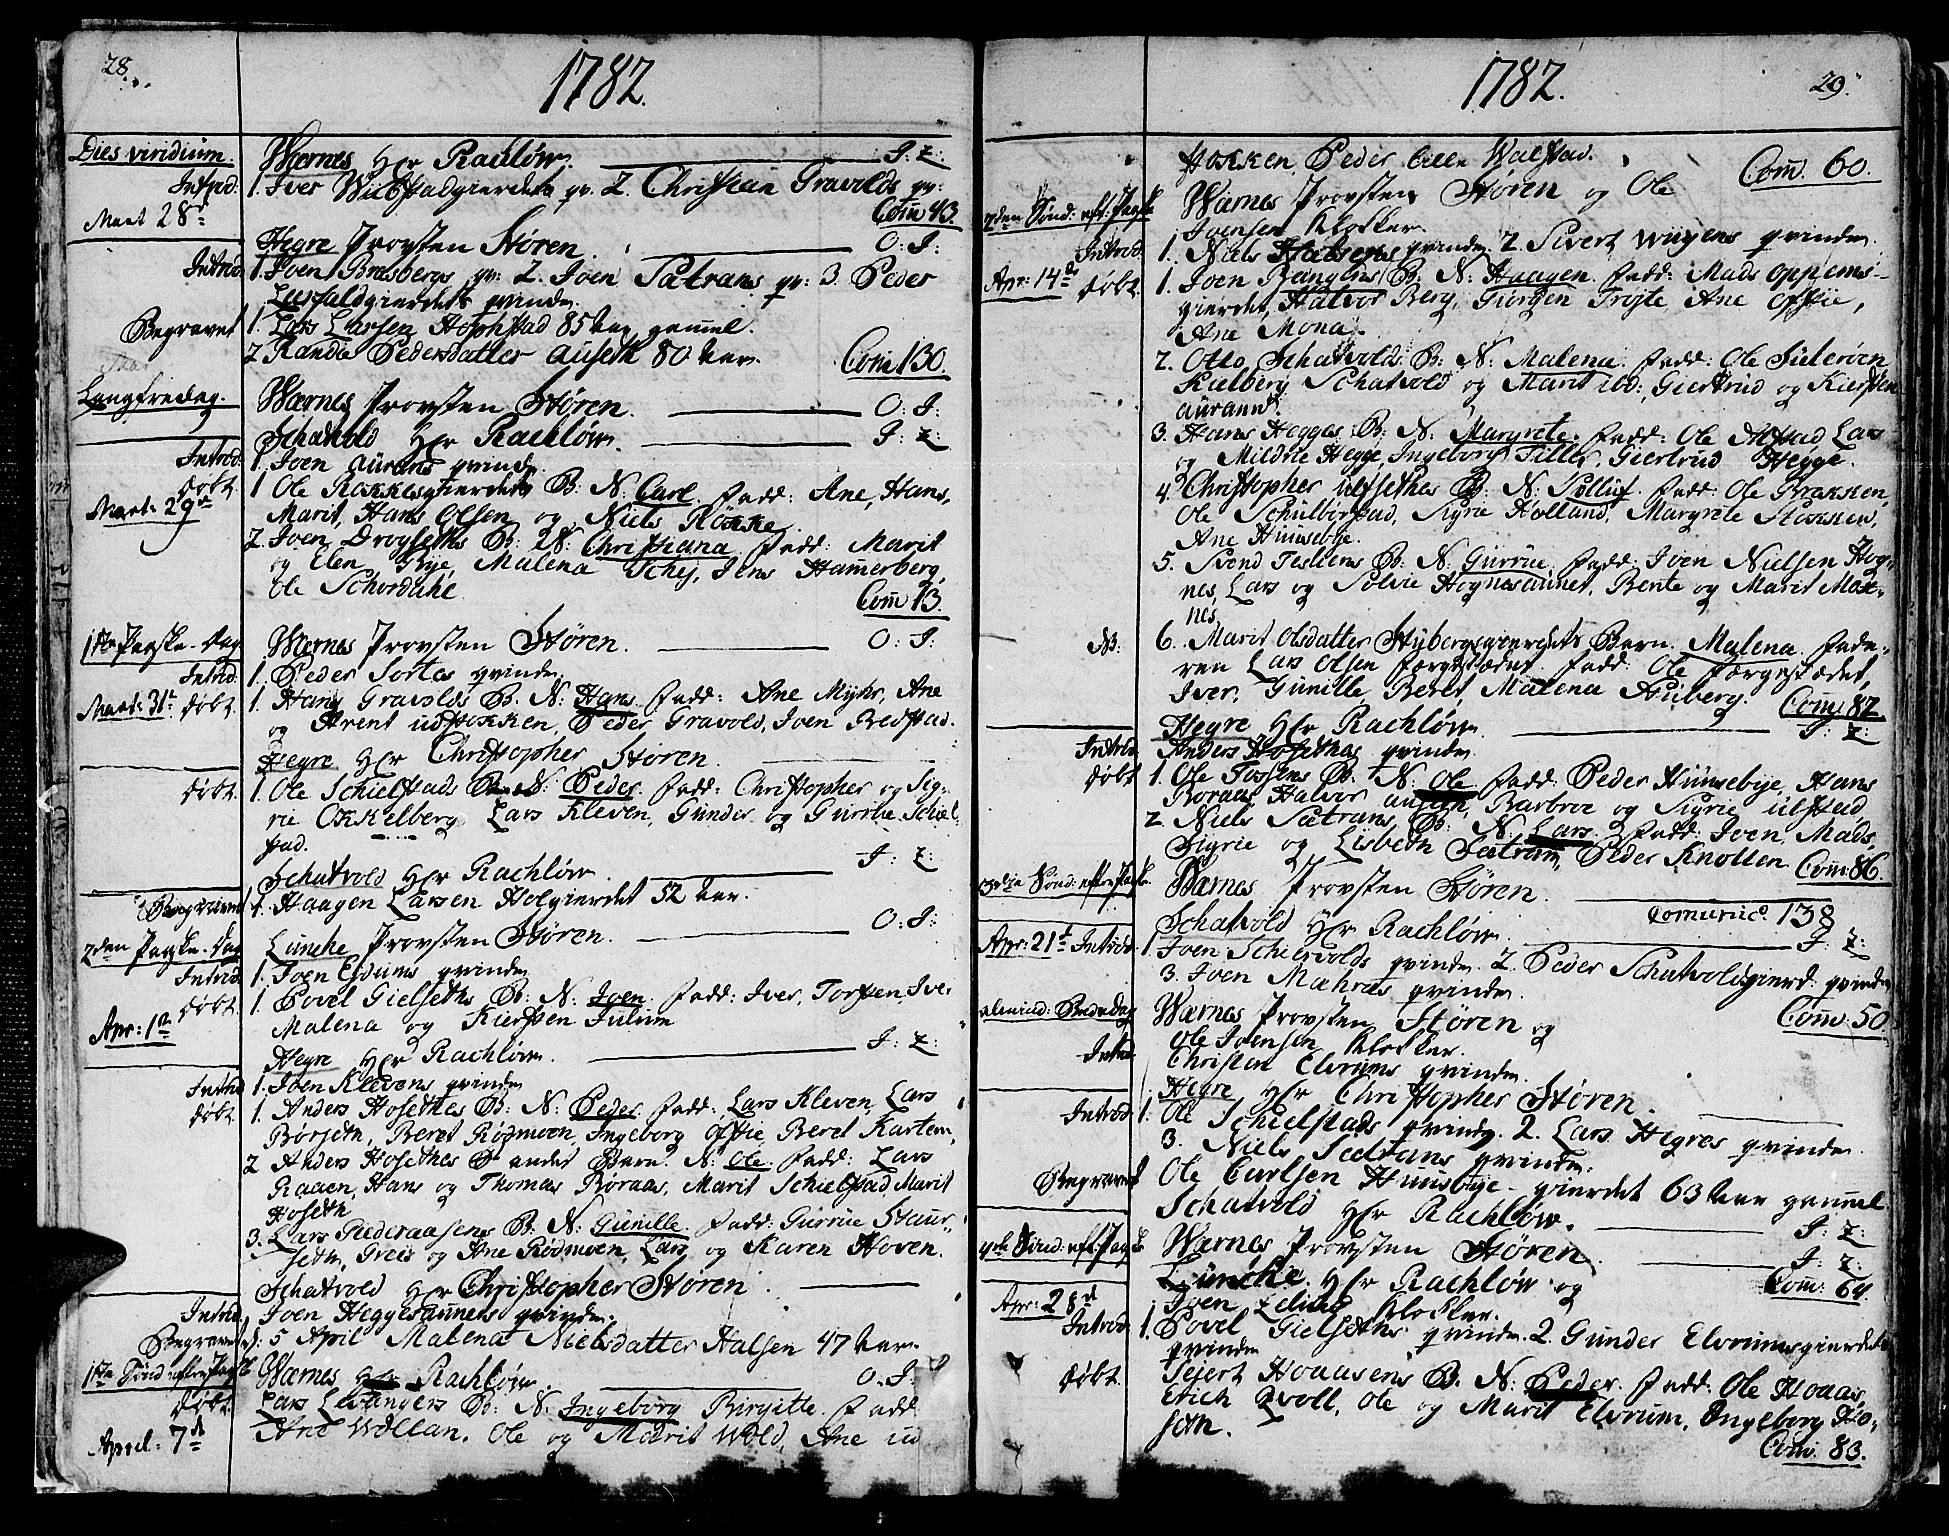 28.
1782.
Dies viridium.
Wærnes Hr Rachløw. J: Z:
Introd. 1. Iver Wibstadgierdets qv. 2. Christian Gravolds qv:
Mart 28de
Com 43.
Hegre Provsten Støren. O: J:
Introd 1. Joen Bralsbergs qv: 2. Joen Sætrans qv: 3. Peder
Larfaldgierdets qvinde.
Begravet 1. Lars Larsen Hophstad 85 Aar gamel.
2. Randie Pedersdatter Auseth 80 Aar. Com 130.
Langfredag.
Wærnes Provsten Støren. O: J:
Schatvold Hr Rachløw. J: Z:
Introd. 1. Joen Aurans qvinde.
Døbt 1 Ole Røkkesgierdets B: N: Carl. Fadd: Ane, Hans,
Mart: 29de
Marit, Hans Olsen og Niels Røkke.
2. Joen Drogseths B: N: Christiana. Fadd: Marit
og Elen Rye, Malena Schej, Jens Hamerberg,
Ole Schordahl. Com 13.
1ste Paaske-Dag
Wærnes Provsten Støren. O: J:
Introd. 1. Peder Sortes qvinde.
Mart: 31te Døbt. 1. Hans Gravolds B: N: Hans. Fadd: Ane Myhr, Ane
og Arent udi Hokken, Peder Gravold, Joen Bredstad.
Hegre Hr Christopher Støren.
Døbt. 1. Ole Schielstads B: N: Peder. Fadd: Christopher og Sig-
rie Okkelberg, Lars Kleven, Gunder og Gurrue Schiel-
stad.
Schatvold Hr Rachløw. J: Z:
Begravet 1. Haagen Larsen Holgierdet 52 Aar.
2den Paaske-Dag
Luncke Provsten Støren. O: J:
Introd 1. Joen Elduns qvinde
Døbt. 1. Povel Gielseths B: N: Joen. Fadd: Iver, Torsten, Iver
Apr: 1ste
Malena og Kiersten Julum
Hegre Hr Rachløw. J: Z:
Introd 1. Joen Klevens qvinde
Døbt. 1. Anders Hoseths B: N: Peder. Fadd: Lars Kleven, Lars
Børseth, Beret Rødmoen, Ingeborg Offie, Beret Karten,
2 Anders Hoseths andet Barn. N: Ole. Fadd: Lars
Raaen, Hans og Thomas Børaas, Marit Schielstad, Marit
Hoseth
3. Lars Pederaasens B: N: Gunille. Fadd: Gurrue Staur-
seth, Greis og Ane Rødmoen, Lars og Karen Hoven.
Schatvold Hr Christopher Støren.
Introd. Joen Heggesaunets qvinde.
Begravet d. 5 April Malena Nielsdatter Halsen 47 Aar.
1ste Sönd: efter Paaske
Wærnes Hr Rachløw. O. J.
Døbt. Lars Levangers B: N: Ingeborg Birgitte. Fadd
April: 7de
Ane Wollan. Ole og Marit Wold, Ane ud
29.
1782.
Hokken, Peder Walstad. Com. 60.
2den Sönd: eft: Paaske
Wærnes Provsten Støren og Ole
Joensen Klokker.
Introd. 1. Niels Halsens qvinde. 2. Sivert Wigens qvinde.
Apr: 14de Døbt. 1. Joen Bangens B: N: Haagen. Fadd: Mads Oppems-
gierdet, Halvor Berg, Jørgen Trøite, Ane Offie,
Ane Mona.
2. Otto Schatvolds B: N: Malena. Fadd: Ole Sulerøen
Kielberg Schatvold og Marit ibd: Giertrud og Kiersten
Aurann.
3. Hans Hegges B: N: Margrete. Fadd: Ole Alstad Lars
og Mildrie Hegge, Ingeborg Tiller, Giertrud Hegge.
4. Christopher Ulfseths B: N: Sølluf. Fadd: Ole Præsken,
Ole Schulborstad, Sigrie Holland, Margrete Stokken,
Ane Hunsebye.
5. Svend Tesliens B: N: Gurrue. Fadd: Joen Nielsen Hog-
nes, Lars og Solvie Hognesaunet, Bente og Marit Mox-
nes.
NB: 6. Marit Olsdatter Stubergsgierdets Barn. Malena. Fade-
ren Lars Olsen Færgestædet. Fadd: Ole Færgestædet,
Iver, Gunille, Beret, Malena Stuberg. Com: 87.
Hegre Hr Rachløw. J: Z:
Introd. Anders Hoseths qvinde
Døbt 1. Ole Tossens B: N: Ole Fadd: Peder Hunsebye, Hans
Boraas, Halvor Auseth, Barbroe og Sigrie Ulstad
2. Niels Sætrans B: N: Lars. Fadd: Joen, Mads,
Sigrie og Lisbeth Sætran, Peder Knotten. Com: 86.
3die Sönd: efter Paaske
Wærnes Provsten Støren. Comunic. 138
Schatvold Hr Rachløw. J: Z:
Apr: 21de Introd. 1. Joen Schielvolds qvinde. 2. Peder Schatvoldsgierd: qvinde
3. Joen Mæhraas qvinde.
Almind: Bededag
Wærnes Provsten Støren og Com: 50
Ole Joensen Klokker.
Introd. Christen Elvrums qvinde.
Hegre Hr Christopher Støren.
Introd. 1. Ole Schielstads qvinde. 2. Lars Hegres qvinde
3. Niels Sætrans qvinde.
Begravet Ole Carlsen Hunsbye-gierdet 63 Aar gamel
Schatvold Hr Rachløw. J: Z:
4de Sönd: eft: Paaske
Wærnes Provsten Støren. J: Z:
Luncke. Hr Rachløw og Com: 64
Apr: 28de
Joen Klokker.
Introd. 1. Povel Gielseths qvinde. 2. Gunder Elvrumsgierdets
qvinde
Døbt. Sejert Hoaasens B: N: Peder. Fadd: Ole Hoaas,
Erich Qvoll, Ole og Marit Elvrum, Ingeborg Ho-
seth.
Com: 83.